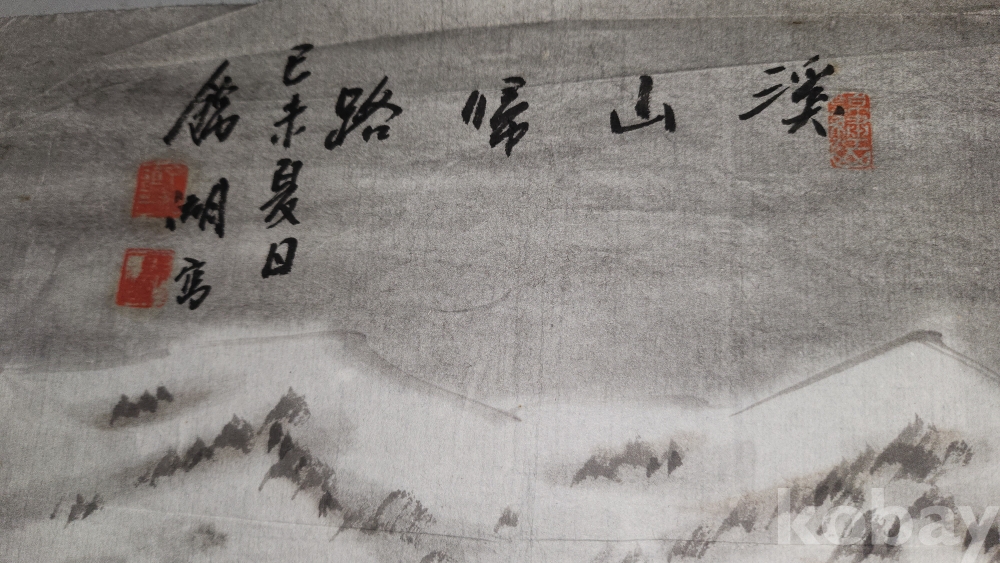 溪山歸路
己未夏日
湖寫
kobay